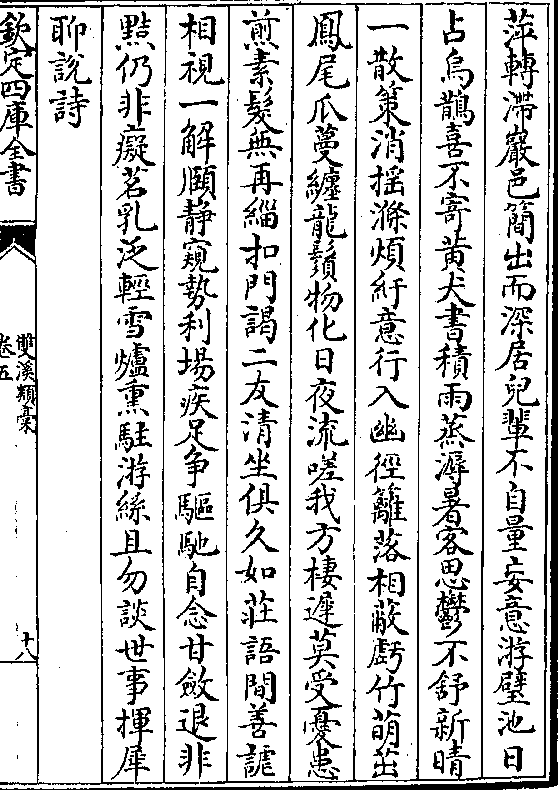 萍轉滯巖邑簡出而深居兒輩不自量妄意游璧池日
占烏鵲喜不寄黄犬書積雨蒸溽暑客思鬱不舒新晴
一散策消揺滌煩紆意行入幽徑籬落相蔽虧竹萌茁
鳳尾瓜蔓纏龍鬚物化日夜流嗟我方棲遲莫受憂患
煎素髮無再緇扣門謁二友清坐俱久如莊語間善謔
相視一解頤静窺勢利場疾足争驅馳自念甘斂退非
黠仍非癡茗乳泛輕雪爐熏駐游絲且勿談世事揮犀
聊説詩
欽定四庫全書
雙溪類稾
卷五
十八